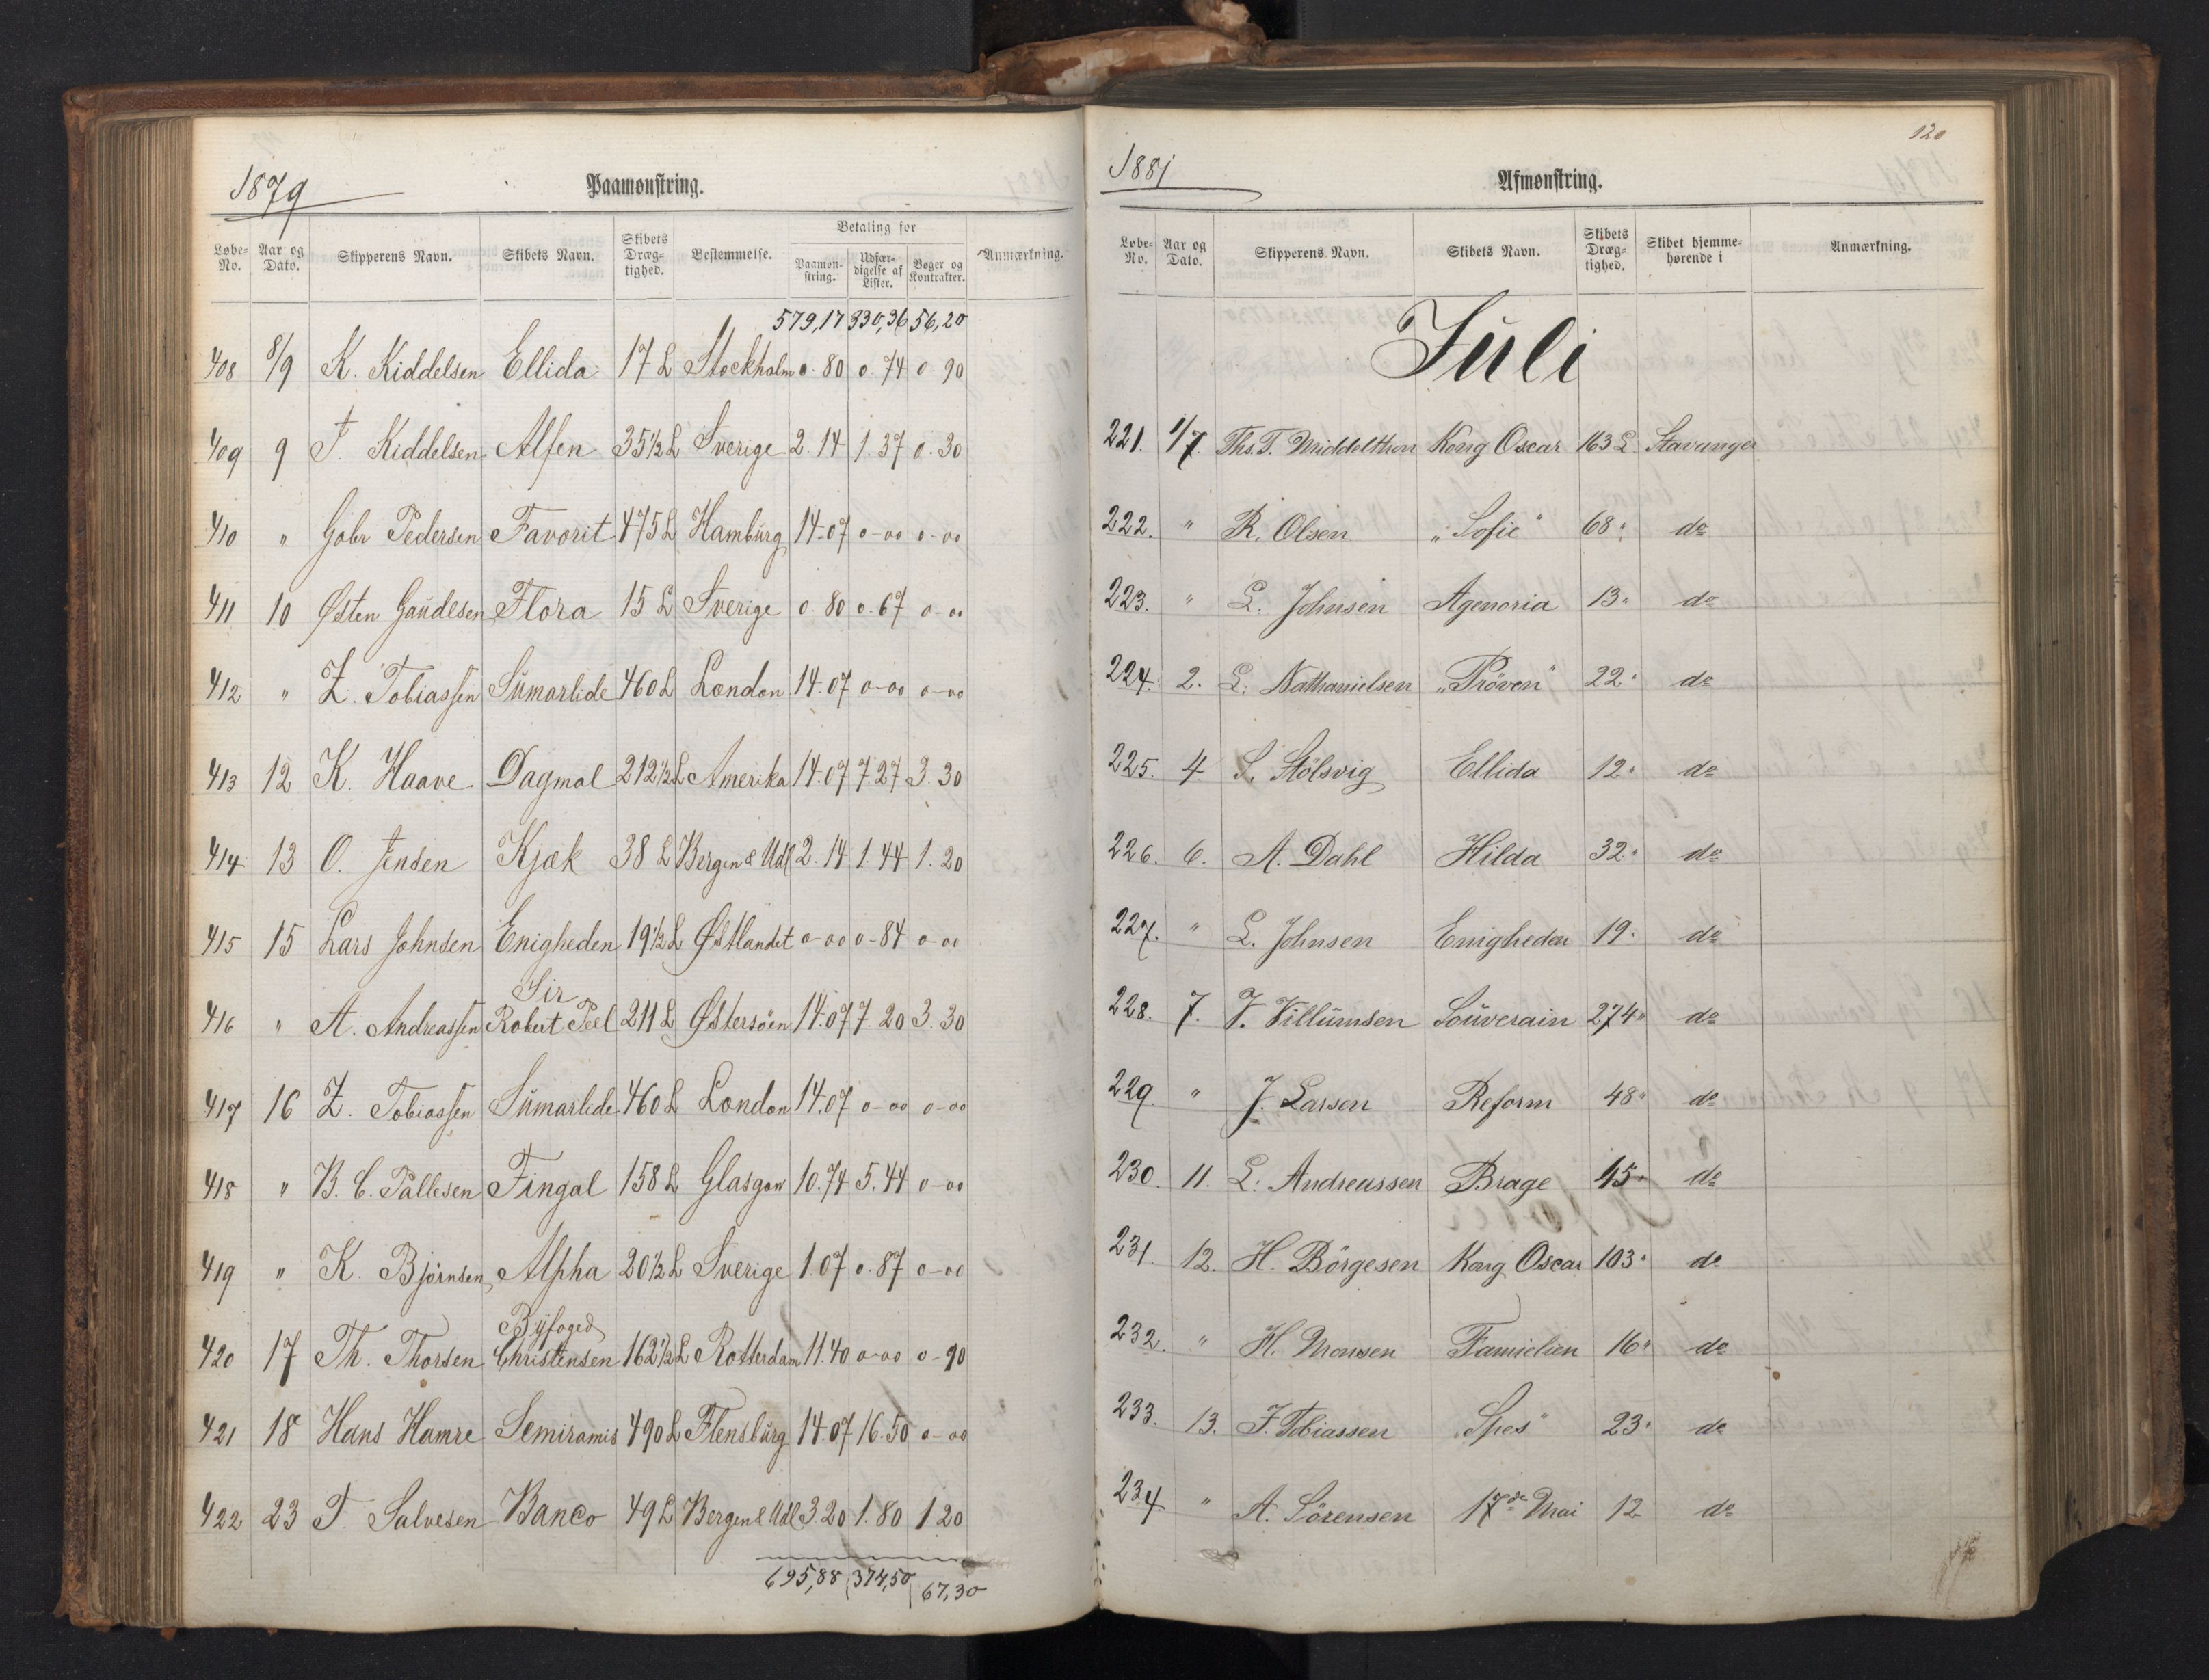 1879
Paamonstring.
Løbe-No. Aar og Dato. Skipperens Navn. Skibets Navn. Skibets Dræg-tighed. Bestemmelse. Betaling for Paamon-string. Udfær-digelse af Lister. Bøger og Kontrakter. Anmærkning.
579,17 330,36 56,20
408 8/9 K. Kiddelsen Ellida 17 L Stockholm 0. 80 0. 74 0. 90
409 9 T. Kiddelsen Alfen 35 1/2 L Sverige 2. 14 1. 37 0. 30
410 " Gabr Pedersen Favorit 475 L Hamburg 14.07 0-00 0-00
411 10 Østen Gaudesen Flora 15 L Sverige 0. 80 0. 67 0-00
412 " Z. Tobiassen Sumarlide 460 L London 14.07 0-00 0-00
413 12 K. Haave Dagmal 212 1/2 L Amerika 14.07 7.27 3.30
414 13 O. Jensen Kjæk 38 L Bergen & Udl 2.14 1.44 1.20
415 15 Lars Johnsen Enigheden 19 1/2 L Østlandet 0-00 0-84 0-00
416 " A. Andreassen Sir Robert Peel 211 L Østersöen 14.07 7.20 3.30
417 16 Z. Tobiassen Sumarlide 460 L London 14.07 0-00 0-00
418 " B. C. Pallesen Fingal 158 L Glasgow 10.74 5.44 0-00
419 " K. Björnsen Alpha 20 1/2 L Sverige 1.07 0.87 0-00
420 17 Th. Thorsen Byfoged Christensen 162 1/2 L Rotterdam 11.40 0-00 0-90
421 18 Hans Hamre Semiramis 490 L Flensburg 14.07 16.50 0-00
422 23 T. Salvesen Banco 49 L Bergen & Udl 3.20 1.80 1.20
695,88 374,50 67,30
120
1881
Afmonstring.
Løbe-No. Aar og Dato. Skipperens Navn. Skibets Navn. Skibets Dræg-tighed. Skibet hjemme-hørende i Anmærkning.
Juli
221. 1/7. Ths. T. Middelthon Kong Oscar 163 L. Stavanger
222. " R. Olsen "Sofie" 68 " do
223. " L. Johnsen Agenoria 13 " do
224. 2. L. Nathanielsen "Pröven" 22 " do
225. 4 S. Stölsvig Ellida 12 " do
226. 6. A. Dahl Hilda 32 " do
227. " L. Johnsen Enigheden 19 " do
228. 7. V. Villumsen Souverain 274 " do
229. " J. Larsen Reform 48 " do
230. 11. L. Andreassen Brage 45 " do
231. 12. H. Börgesen Kong Oscar 103 " do
232. " H. Monsen Familien 16 " do
233. 13. J. Tobiassen "Spes" 23 " do
234. " A. Sörensen 17de Mai 12 do